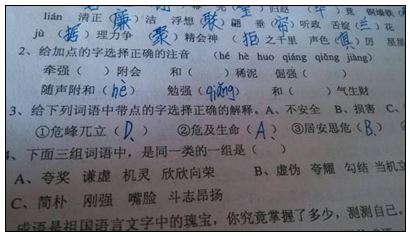 lián 清正(廉)洁 浮想(联)翩 垂(帘)听政 舌绽(兰)花
jù (据)理力争 (聚)精会神 (拒)之千里 声色(俱)厉 星星
2、给加点的字选择正确的注音 (hé hè huo qiáng qiǎng jiàng)
牵强( )附会 和( )稀泥 倔强( )
随声附和(hè) 勉强(qiǎng) 和( )气生财
3、给下列词语中带点的字选择正确的解释。A、不安全 B、损害 C、
①危峰兀立(D、) ②危及生命(A、) ③居安思危(B、)
、下面三组词语中,是同一类的一组是( )
A、夸奖 谦虚 机灵 欣欣向荣 B、虚伪 夸耀 勾结 当机立
C、简朴 刚强 嘴脸 斗志昂扬
成语是祖国语言文字中的瑰宝,你究竟掌握了多少,测测自己。